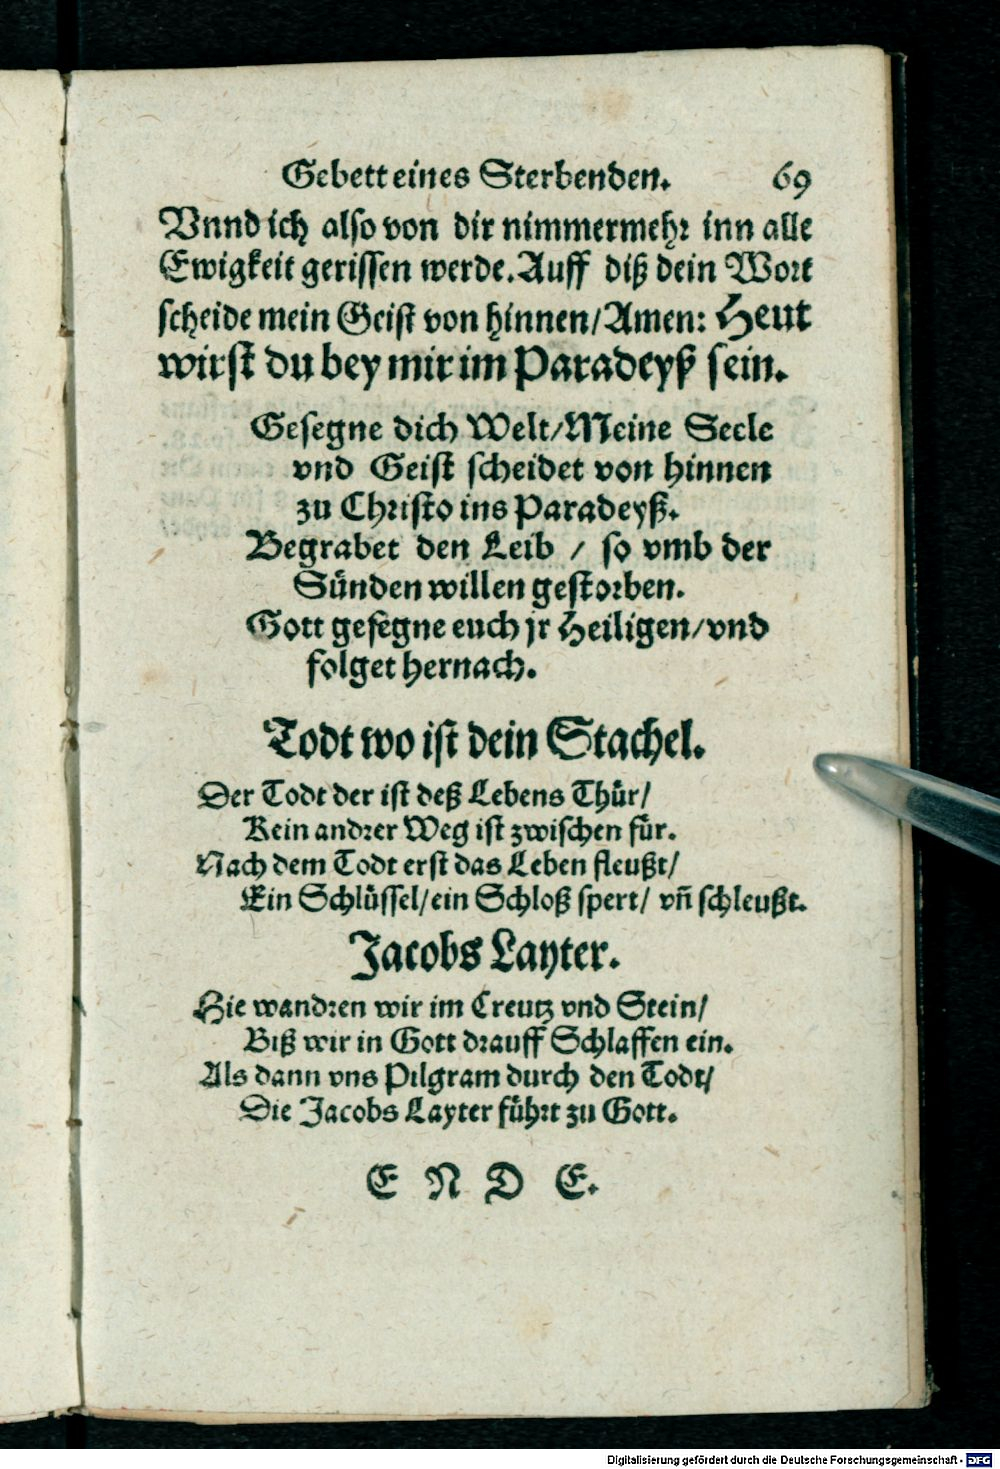 Gebett eines Sterbenden. 69
Vnnd ich also von dir nimmermehr inn alle
Ewigkeit gerissen werde. Auff diß dein Wort
scheide mein Geist von hinnen/Amen: Heut
wirst du bey mir im Paradeyß sein.
Gesegne dich Welt/Meine Seele
vnd Geist scheidet von hinnen
zu Christo ins Paradeyß.
Begrabet den Leib / so vmb der
Sünden willen gestorben.
Gott gesegne euch jr Heiligen/vnd
folget hernach.
Todt wo ist dein Stachel.
Der Todt der ist deß Lebens Thür/
Kein andrer Weg ist zwischen für.
Nach dem Todt erst das Leben fleußt/
Ein Schlüssel/ein Schloß spert/ vñ schleußt.
Jacobs Layter.
Hie wandren wir im Creutz vnd Stein/
Biß wir in Gott drauff Schlaffen ein.
Als dann vns Pilgram durch den Todt/
Die Jacobs Layter führt zu Gott.
E N D E.
Digitalisierung gefördert durch die Deutsche Forschungsgemeinschaft - DFG